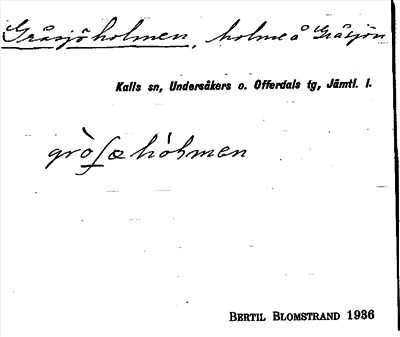 Gråsjöholmen, holme å Gråsjön
Kalls sn, Undersåkers o. Offerdals tg, Jämtl. l.
grò̀ʃæhòhmen
BERTIL BLOMSTRAND 1936